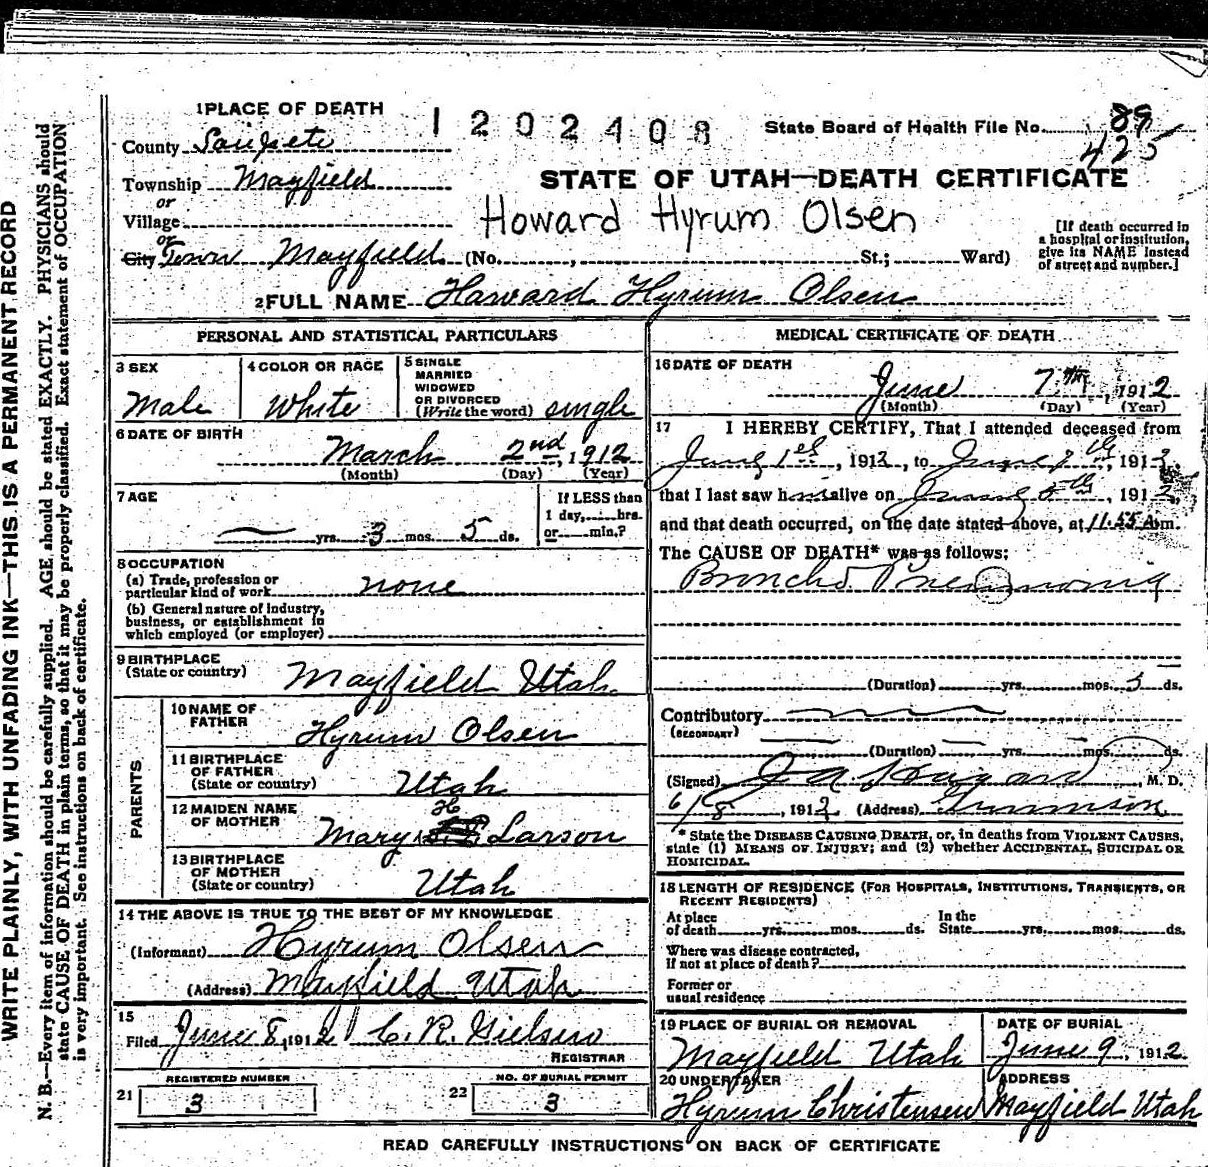 1 PLACE OF DEATH
1202408
State Board of Health File No. 89
425
County Sanpete
Township Mayfield
or
Village
or
City Town Mayfield (No. , St.; Ward)
STATE OF UTAH—DEATH CERTIFICATE
Howard Hyrum Olsen
[If death occurred in
a hospital or institution,
give its NAME instead
of street and number.]
2 FULL NAME Howard Hyrum Olsen
PERSONAL AND STATISTICAL PARTICULARS
3 SEX
Male
4 COLOR OR RACE
White
5 SINGLE
MARRIED
WIDOWED
OR DIVORCED
(Write the word) single
6 DATE OF BIRTH
March 2nd, 1912
(Month) (Day) (Year)
7 AGE
yrs. 3 mos. 5 ds.
If LESS than
1 day, hrs.
or min.?
8 OCCUPATION
(a) Trade, profession or
particular kind of work none
(b) General nature of industry,
business, or establishment in
which employed (or employer)
9 BIRTHPLACE
(State or country) Mayfield Utah.
PARENTS
10 NAME OF
FATHER Hyrum Olsen
11 BIRTHPLACE
OF FATHER
(State or country) Utah
12 MAIDEN NAME
OF MOTHER Mary H Larson
13 BIRTHPLACE
OF MOTHER
(State or country) Utah
14 THE ABOVE IS TRUE TO THE BEST OF MY KNOWLEDGE
(Informant) Hyrum Olsen
(Address) Mayfield Utah
15
Filed June 8, 1912 C. R.
REGISTRAR
REGISTERED NUMBER
21 3
NO. OF BURIAL PERMIT
22 3
MEDICAL CERTIFICATE OF DEATH
16 DATE OF DEATH
June 7th, 1912
(Month) (Day) (Year)
17 I HEREBY CERTIFY, That I attended deceased from
June 1st, 1912, to June 7th, 1912,
that I last saw him alive on June 6th, 1912,
and that death occurred, on the date stated above, at 11.55 A.m.
The CAUSE OF DEATH* was as follows:
Broncho Pneumonia
(Duration) yrs. mos. 5 ds.
Contributory
(SECONDARY)
(Duration) yrs. mos. ds.
(Signed) J A Hagan, M. D.
6/8, 1912 (Address) Gunnison
* State the DISEASE CAUSING DEATH, or, in deaths from VIOLENT CAUSES,
state (1) MEANS OF INJURY; and (2) whether ACCIDENTAL, SUICIDAL OR
HOMICIDAL.
18 LENGTH OF RESIDENCE (FOR HOSPITALS, INSTITUTIONS, TRANSIENTS, OR
RECENT RESIDENTS)
At place In the
of death yrs. mos. ds. State yrs. mos. ds.
Where was disease contracted,
If not at place of death?
Former or
usual residence
19 PLACE OF BURIAL OR REMOVAL
Mayfield Utah
DATE OF BURIAL
June 9, 1912
20 UNDERTAKER
Hyrum Christensen
ADDRESS
Mayfield Utah
READ CAREFULLY INSTRUCTIONS ON BACK OF CERTIFICATE
WRITE PLAINLY, WITH UNFADING INK—THIS IS A PERMANENT RECORD
N. B.—Every item of information should be carefully supplied. AGE should be stated EXACTLY. PHYSICIANS should
state CAUSE OF DEATH in plain terms, so that it may be properly classified. Exact statement of OCCUPATION
is very important. See instructions on back of certificate.